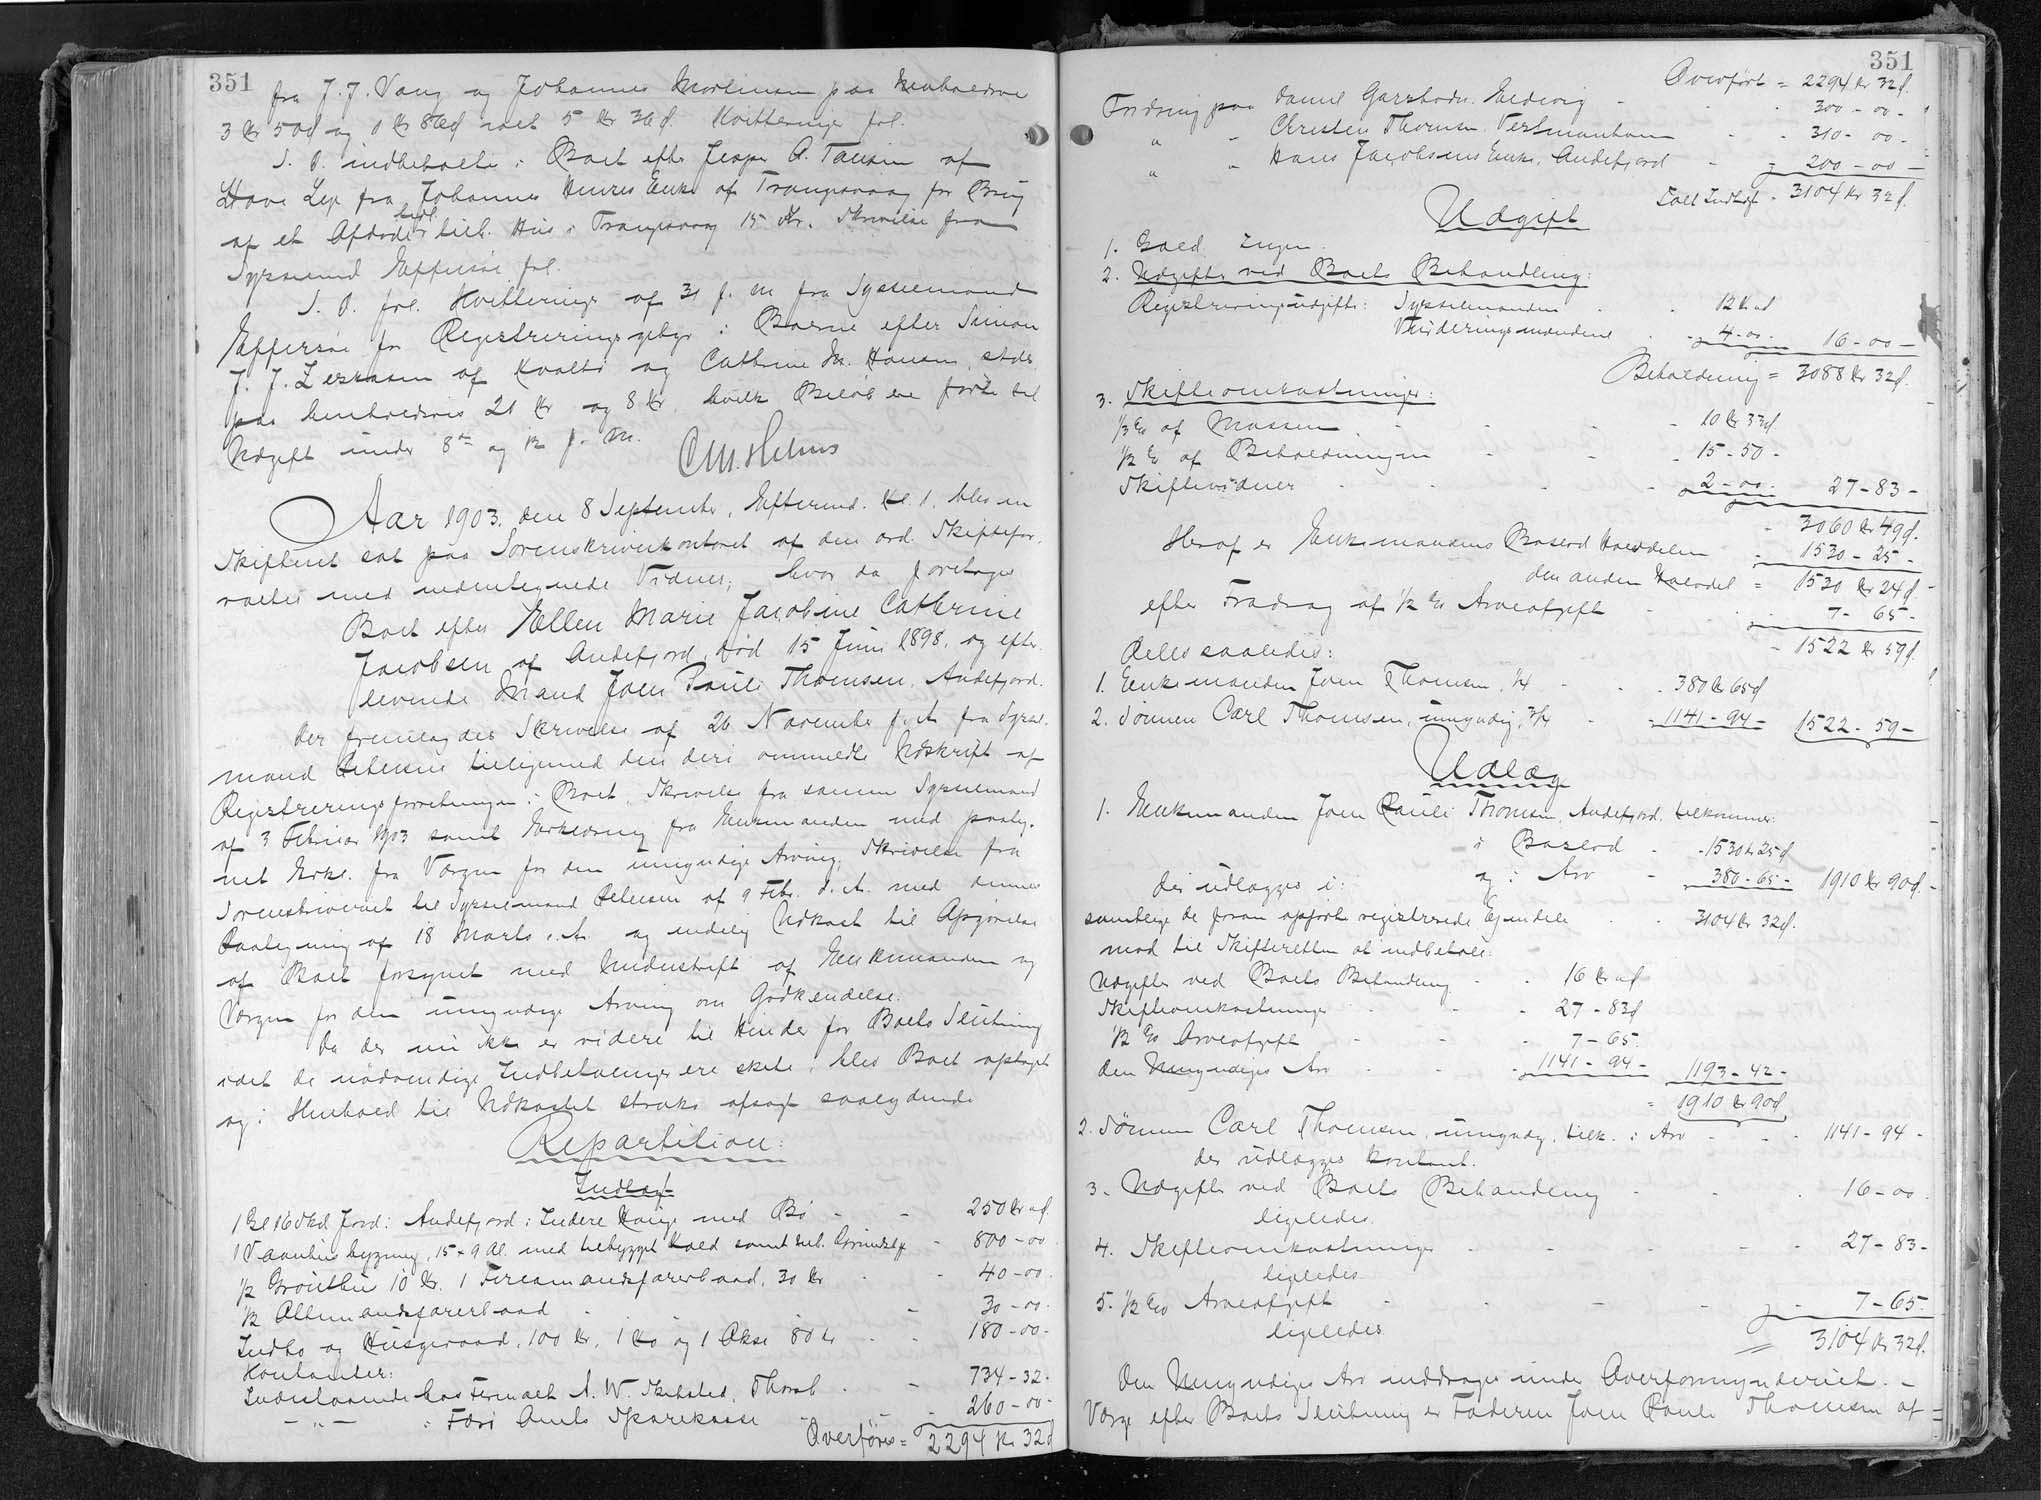 351
fra J. J. Vang og Johannes Mortensen paa henholdsvis
3 Kr 50 d og 1 Kr 86 d ialt 5 Kr 36 d Kvitteringer fol.
S. D. indbetalte i Boet efter Jesper A. Tausen af
Leje fra Johannes Enke af Trangisvaag for Brug
af et Afdøde tilh. Hus i Trangisvaag 15 Kr. Skrivelse fra
Sysselmand Effersøe fol.
S. D. fol. Kvitteringer af 31 f. M. fra Sysselmand
Effersøe for Registreringsgebyr i Boerne efter Simon
J. J. af Kvalbø og Cathrine M. Hansen,
paa henholdsvis 21 Kr og 8 Kr, hvilke Beløb ere førte til
Udgift under 8de og 12 f. M.
C M. Helms
Aar 1903. den 8 September, Eftermd. Kl. 1. blev en
Skifteret sat paa Sorenskriverkontoret af den ord. Skiftefor-
valter med undertegnede Vidner, hvor da foretoges
Boet efter Ellen Marie Jacobine Cathrine
Jacobsen af Andefjord, død 15 Juni 1898. og efter-
levende Mand Joen Pauli Thomsen, Andefjord.
Der fremlagdes Skrivelse af 26 November f. A. fra Syssel-
mand Petersen tilligemed den deri ommeldte Udskrift af
Registreringsforretningen i Boet, Skrivelse fra samme Sysselmand
af 3 Februar 1903 samt Erklæring fra Enkemanden med paateg-
net Erkl. fra Værgen for den umyndige Arving, Skrivelse fra
Sorenskriveriet til Sysselmand Petersen af 9 Febr. d. A. med dennes
Paategning af 18 Marts s. A. og endelig Udkast til Afgørelse
af Boet forsynet med Underskrift af Enkemanden og
Værgen for den umyndige Arving om Godkendelse.
Da der nu ikke er videre til Hinder for Boets Slutning
idet de nødvendige Indbetalinger ere skete, blev Boet optaget
og i Henhold til Udkastet straks afsagt saalydende
Repartition:
Indtægt
1 Gl 16 Skd Jord i Andefjord i Indere Hauge med Bø - - 250 Kr d
1 Vaanhusbygning, 15 x 9 Al. med tilbygget Hald samt Grundstk - 800 - 00
1/2 Grouthus 10 Kr. 1 Firemandsfarerbaad, 30 Kr - - 40 - 00.
1/2 Ottemandsfarerbaad - - 30 - 00.
Indbo og Husgeraad, 100 Kr, 1 Ko og 1 Okse 80 Kr - - 180 - 00 -
Kontanter:
Indestaaende hos Firmaet A. W. Thorsh. - - 734 - 32 -
- " - i Færø Amts Sparekasse - - 260 - 00 -
Overføres = 2294 Kr 32 d
351
Overført = 2294 Kr 32 d.
Fordring paa Daniel - 300 - 00 -
" - Christen Thomsen, Vestmanhavn - - 310 - 00 -
" - Hans Jacobsens Enke, Andefjord - - 200 - 00 -
Ialt Indtægt = 3104 Kr 32 d.
Udgift
1. Gæld. Ingen.
2. Udgifter ved Boets Behandling:
Registreringsudgifter: Sysselmanden - 12 Kr d
Vurderingsmændene - 4 - 00 - 16 - 00 -
Beholdning = 3088 Kr 32 d.
3. Skifteomkostninger:
1/3 % af Massen - - - - 10 Kr 33 d.
1/2 % af Beholdningen - - - 15 - 50 -
Skiftevidner - - - - 2 - 00 - 27 - 83 -
- 3060 Kr 49 d.
Heraf er Enkemandens Boslod Halvdelen - 1530 - 25 -
den anden Halvdel = 1530 Kr 24 d. -
efter Fradrag af 1/2 % Arveafgift - - 7 - 65 -
- 1522 Kr 59 d.
Deles saaledes:
1. Enkemanden Joen Thomsen, 1/4 - - - 380 Kr 65 d
2. Sønnen Carl Thomsen, umyndig, 3/4 - - 1141 - 94 - 1522 - 59 -
Udlæg
1. Enkemanden Joen Pauli Thomsen, Andefjord, tilkommer:
i Boslod - - 1530 Kr 25 d
og i Arv - 380 - 65 - 1910 Kr 90 d. -
der udlægges i:
samtlige de foran opførte registrerede Ejendele - - 3104 Kr 32 d.
mod til Skifteretten at indbetale:
Udgifter ved Boets Behandling - - 16 Kr d
Skifteomkostninger - - - 27 - 83 d
1/2 % Arveafgift - - - 7 - 65
den Umyndiges Arv - - - 1141 - 94 - 1193 - 42 -
= 1910 Kr 90 d
2. Sønnen Carl Thomsen, umyndig, tilk. i Arv - - - 1141 - 94 -
der udlægges kontant.
3. Udgifter ved Boets Behandling - - - 16 - 00.
ligeledes.
4. Skifteomkostninger - - - - 27 - 83 -
ligeledes
5. 1/2 % Arveafgift - - - - 7 - 65.
ligeledes
= 3104 Kr 32 d.
Den Umyndiges Arv inddrages under Overformynderiet. -
Værge efter Boets Slutning er Faderen Joen Pauli Thomsen af